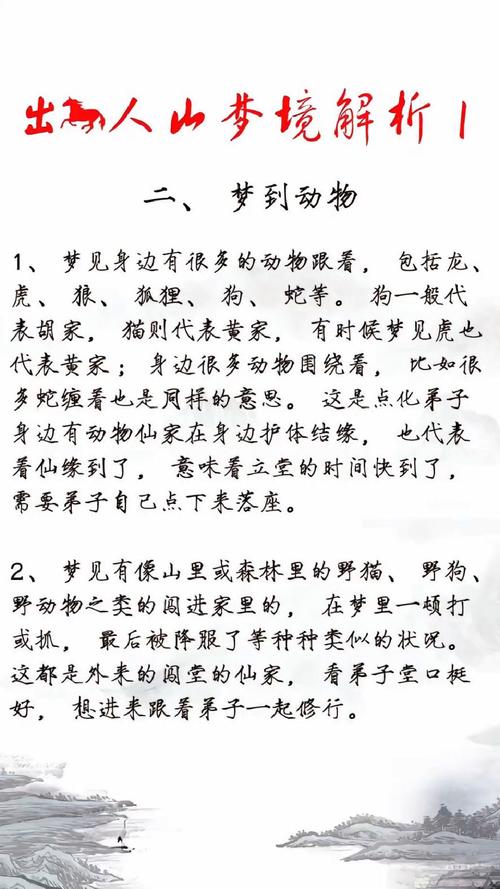 出马人山梦境解析1
二、 梦到动物
1、 梦见身边有很多的动物跟着， 包括龙、
虎、 狼、 狐狸、 狗、 蛇等。 狗一般代
表胡家， 猫则代表黄家， 有时候梦见虎也
代表黄家； 身边很多动物围绕着， 比如很
多蛇缠着也是同样的意思。 这是点化弟子
身边有动物仙家在身边护体结缘， 也代表
着仙缘到了， 意味着立堂的时间快到了，
需要弟子自己点下来落座。
2、 梦见有像山里或森林里的野猫、 野狗、
野动物之类的闯进家里的， 在梦里一顿打
或抓， 最后被降服了等种种类似的状况。
这都是外来的闯堂的仙家， 看弟子堂口挺
好， 想进来跟着弟子一起修行。